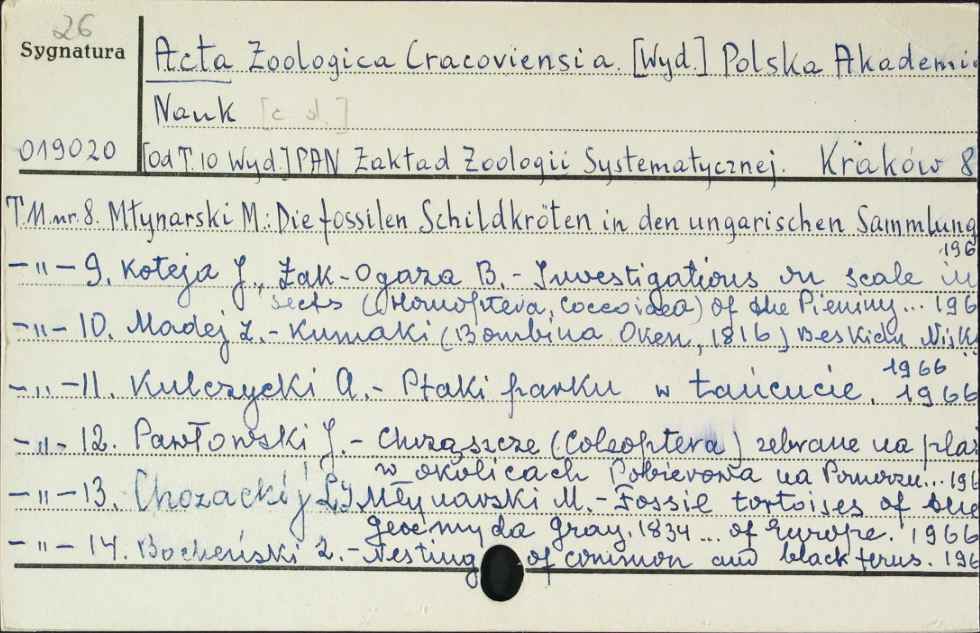 26
Sygnatura
Acta Zoologica Cracoviensia. [Wyd.] Polska Akademi
Nauk [c d.]
019020
[Od T. 10 Wyd.] PAN Zakład Zoologii Systematycznej. Kraków 8
T. 11. nr. 8. Młynarski M.: Die fossilen Schildkröten in den ungarischen Sammlung
196
-"- 9. Koteja J., Żak-Ogaza B. - Investigations on scale in
sects (Homoptera, Coccoidea) of the Pieniny... 196
-"- 10. Madej Z. - Kumaki (Bombina Oken, 1816) Beskidu Nisk
1966
-"- 11. Kulczycki A. - Ptaki parku w Łańcucie. 1966
-"- 12. Pawłowski J. - Chrząszcze (Coleoptera) zebrane na pla
w okolicach Pobierowa na Pomorzu... 196
-"- 13. Młynarski M. - Fossil tortoises of the
geoemyda Gray, 1834 ... of Europe. 1966
-"- 14. Bocheński Z. - Nesting of common and black terns. 196